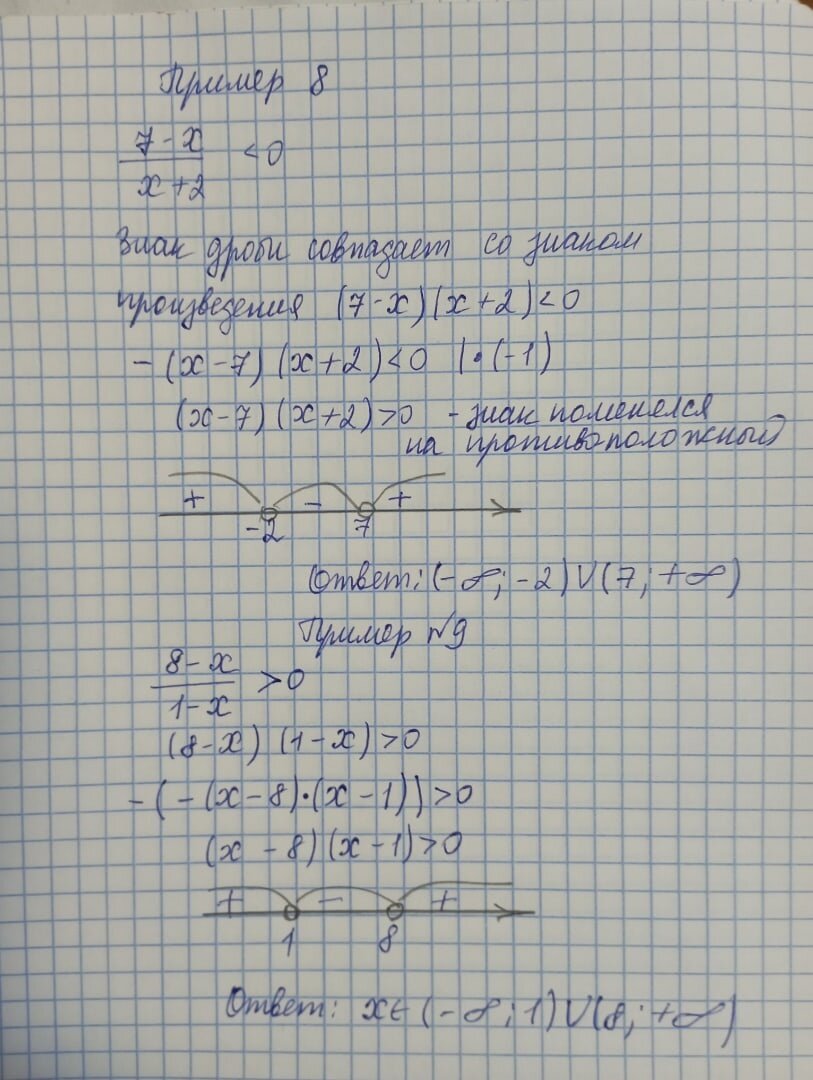 Пример 8
7-x
x+2
<0
Знак дроби совпадает со знаком
произведения (7-x)(x+2)<0
-(x-7)(x+2)<0 |•(-1)
(x-7)(x+2)>0 - знак поменялся
на противоположный
+ - +
-2 7
Ответ: (-∞; -2)∪(7; +∞)
Пример №9
8-x
1-x
>0
(8-x)(1-x)>0
-(-(x-8)•(x-1))>0
(x-8)(x-1)>0
+ - +
1 8
Ответ: x∈(-∞; 1)∪(8; +∞)